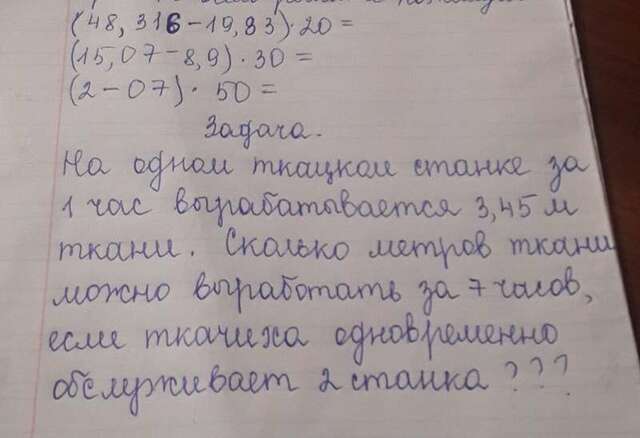 (48,316-19,83)·20=
(15,07-8,9)·30=
(2-07)·50=
Задача.
На одном ткацком станке за
1 час вырабатывается 3,45 м
ткани. Сколько метров ткани
можно выработать за 7 часов,
если ткачиха одновременно
обслуживает 2 станка???